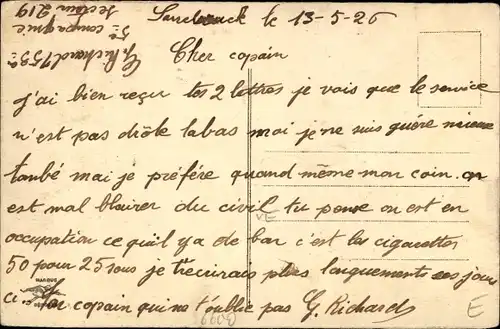 G. Richard 153e
5e compagnie
secteur 219
le 13-5-26
Cher copain
j'ai bien reçu tes 2 lettres je vois que le service
n'est pas drôle labas moi je ne suis guére mieux
tombé mai je préfére quand même mon coin. on
est mal blairer du civil tu pense on est en
occupation ce quil y a de bar c'est les cigarettes
50 pour 25 sous je t'ecrirais plus longuements ses jours
ci. Ton copain qui ne t'oublie pas G. Richard
VE
MARQUE
E